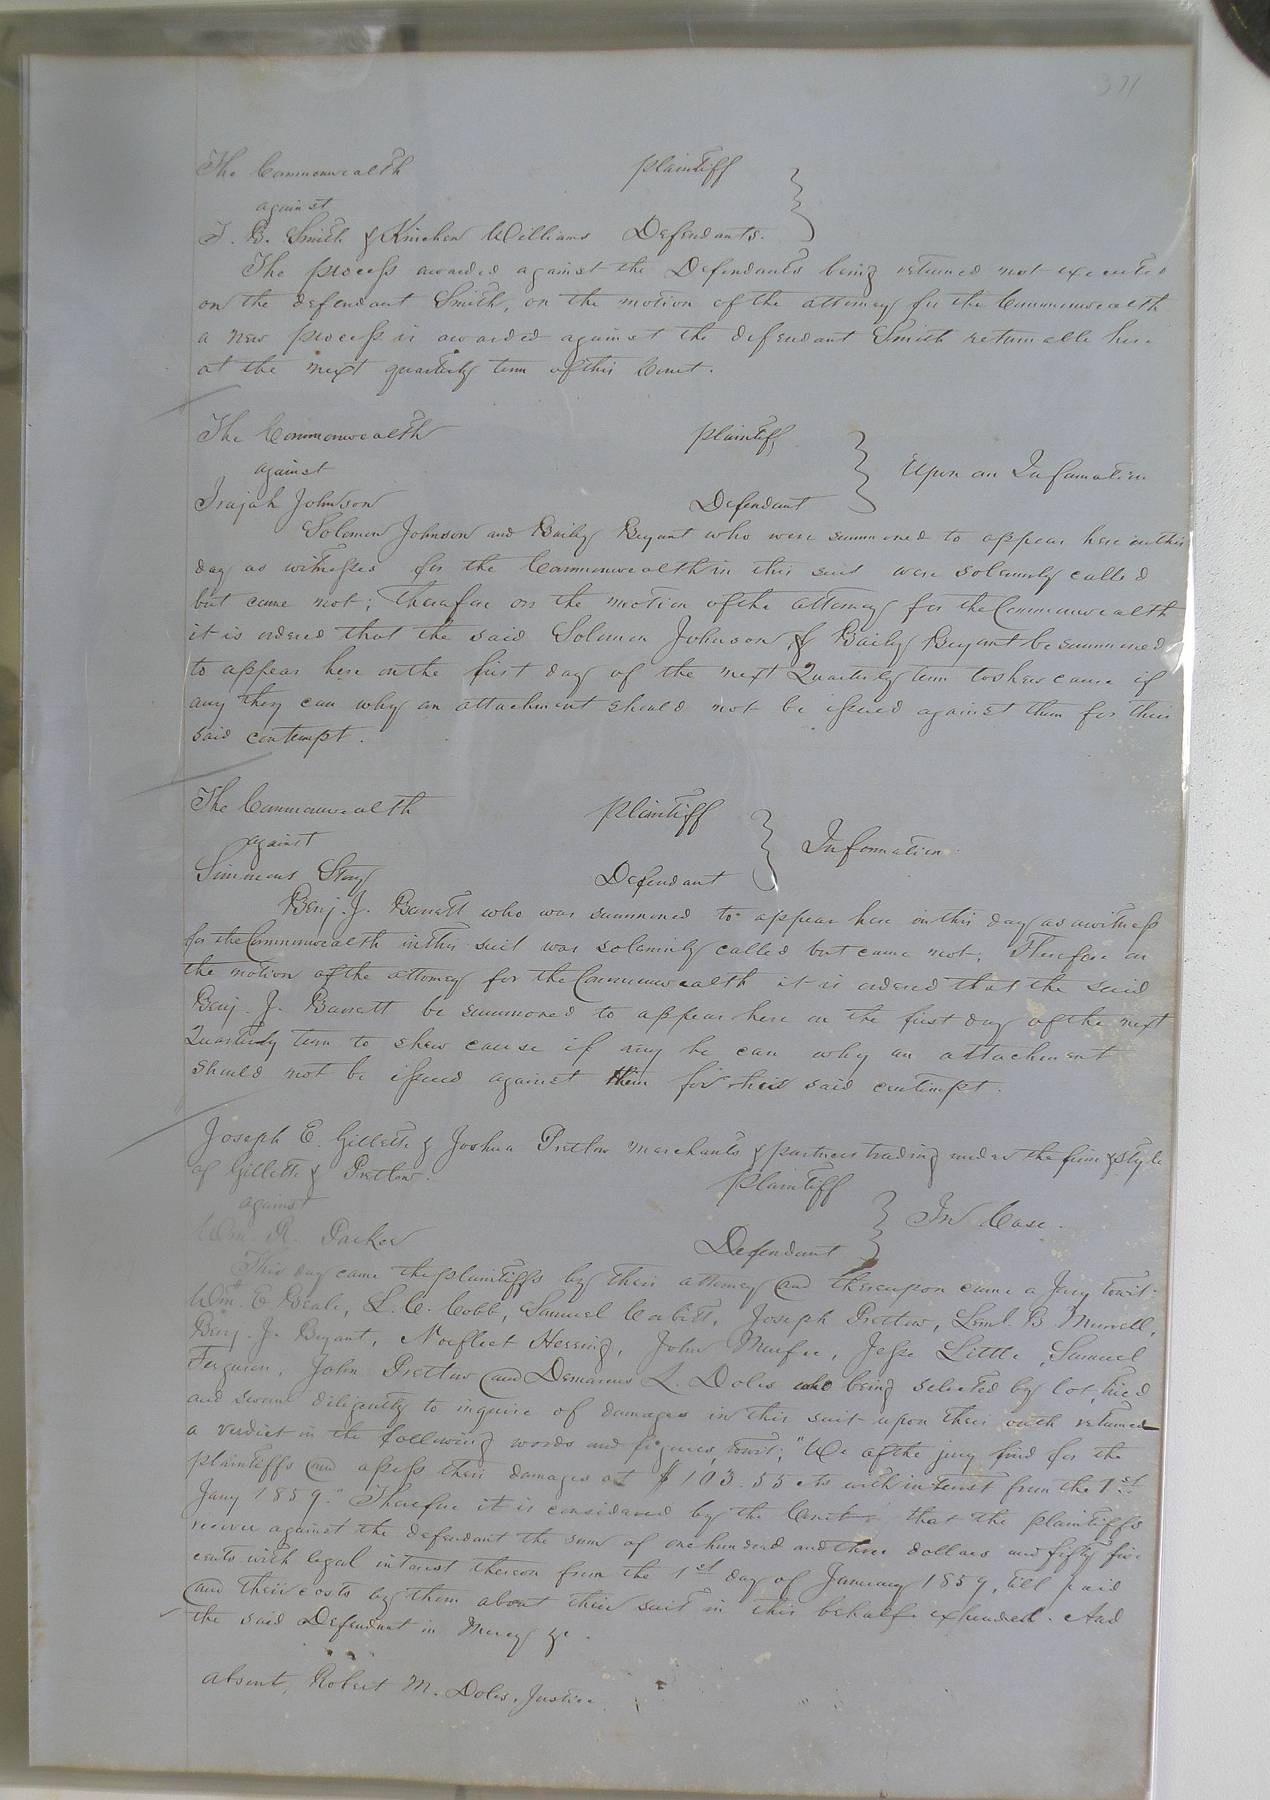 371
The Commonwealth plaintiff
against
J. B. Smith & Kinchen Williams Defendants.
The process awarded against the Defendants being returned not executed
on the defendant Smith, on the motion of the attorney for the Commonwealth
a new process is awarded against the defendant Smith returnable here
at the next quarterly term of this Court.
The Commonwealth plaintiff
against Upon an Information
Irajah Johnson Defendant
Solomon Johnson and Baily Bryant who were summoned to appear here on this
day as witnesses for the Commonwealth in this suit were solemnly called
but came not; Therefore on the motion of the attorney for the Commonwealth
it is ordered that the said Solomon Johnson & Baily Bryant be summoned
to appear here on the first day of the next Quarterly term to shew cause if
any they can why an attachment should not be issued against them for their
said contempt.
The Commonwealth plaintiff
against Information
Simmons Defendant
Benj. J. Barrett who was summoned to appear here on this day as a witness
for the Commonwealth in this suit was solemnly called but came not; Therefore on
the motion of the attorney for the Commonwealth it is ordered that the said
Benj. J. Barrett be summoned to appear here on the first day of the next
Quarterly term to shew cause if any he can why an attachment
should not be issued against him for his said contempt.
Joseph E. Gillette & Joshua Pretlow merchants & partners trading under the firm & style
of Gillette & Pretlow. Plaintiff
against In Case.
Wm. R. Parker Defendant
This day came the plaintiffs by their attorney and thereupon came a Jury towit:
Wm. E Beale, L. C. Cobb, Samuel Corbitt, Joseph Pretlow, Leml. B. Murrell,
Benj. J. Bryant, Norfleet Herring, John Murfee, Jesse Little, Samuel
Ferguson, John Pretlow and Demarcus L. Doles who being selected by lot, tried
and sworn diligently to inquire of damages in this suit upon their oath returned
a verdict in the following words and figures, towit; "We of the jury find for the
plaintiffs and assess their damages at $103.55 cts with interest from the 1st
Jany 1859." Therefore it is considered by the Court that the plaintiffs
recover against the defendant the sum of one hundred and three dollars and fifty five
cents with legal interest thereon from the 1st day of January 1859, till paid
and their costs by them about their suit in this behalf expended. And
the said Defendant in Mercy &c.
absent, Robert M. Doles, Justice